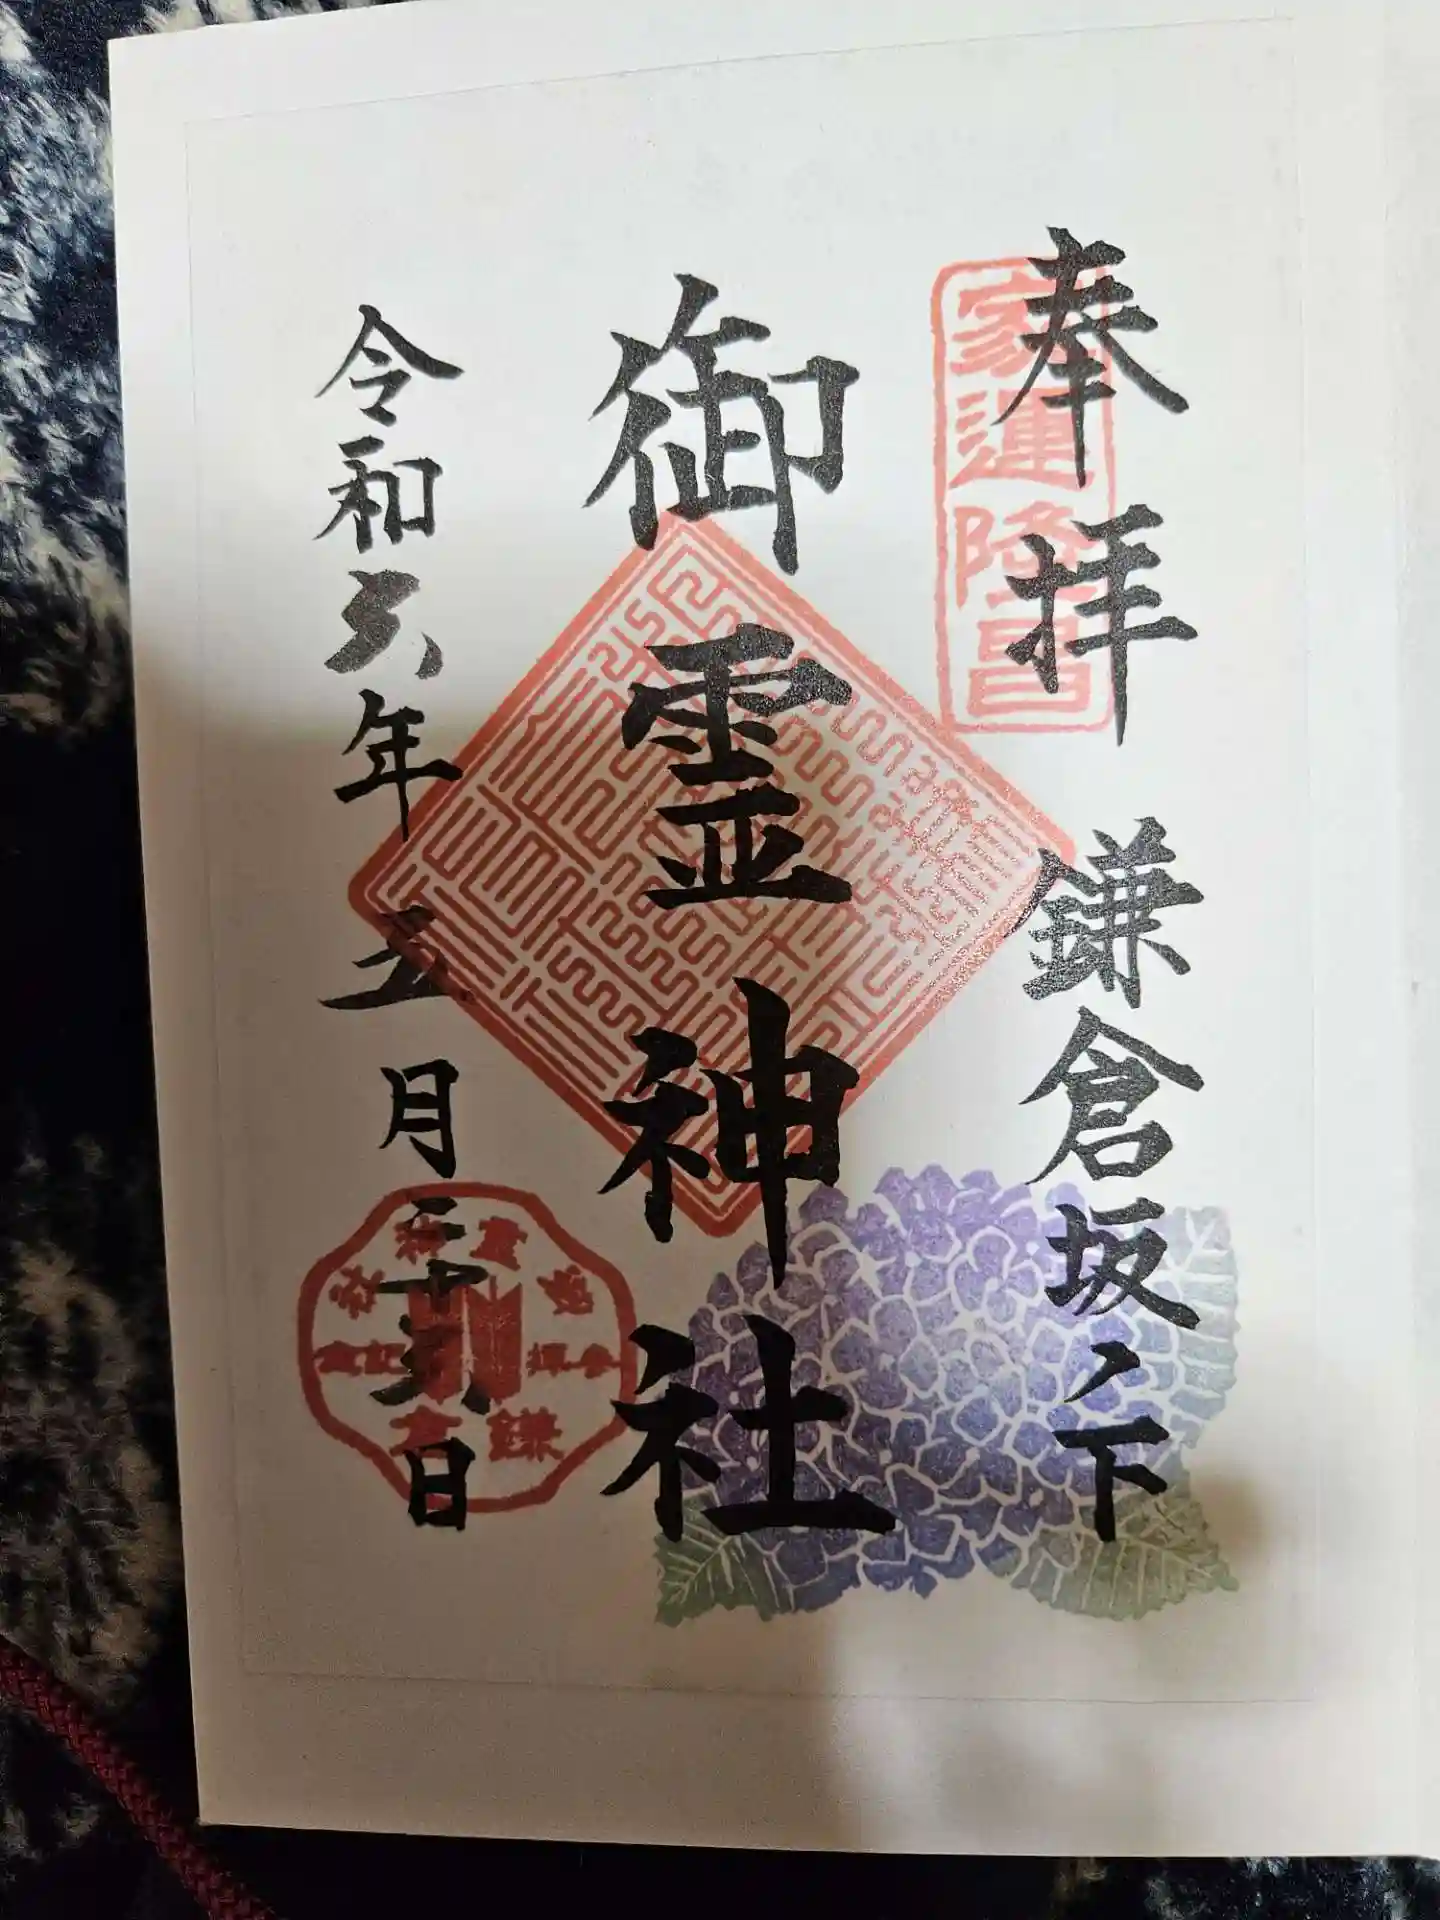 奉拝 鎌倉坂ノ下
家運隆昌
御霊神社
令和六年五月二十六日